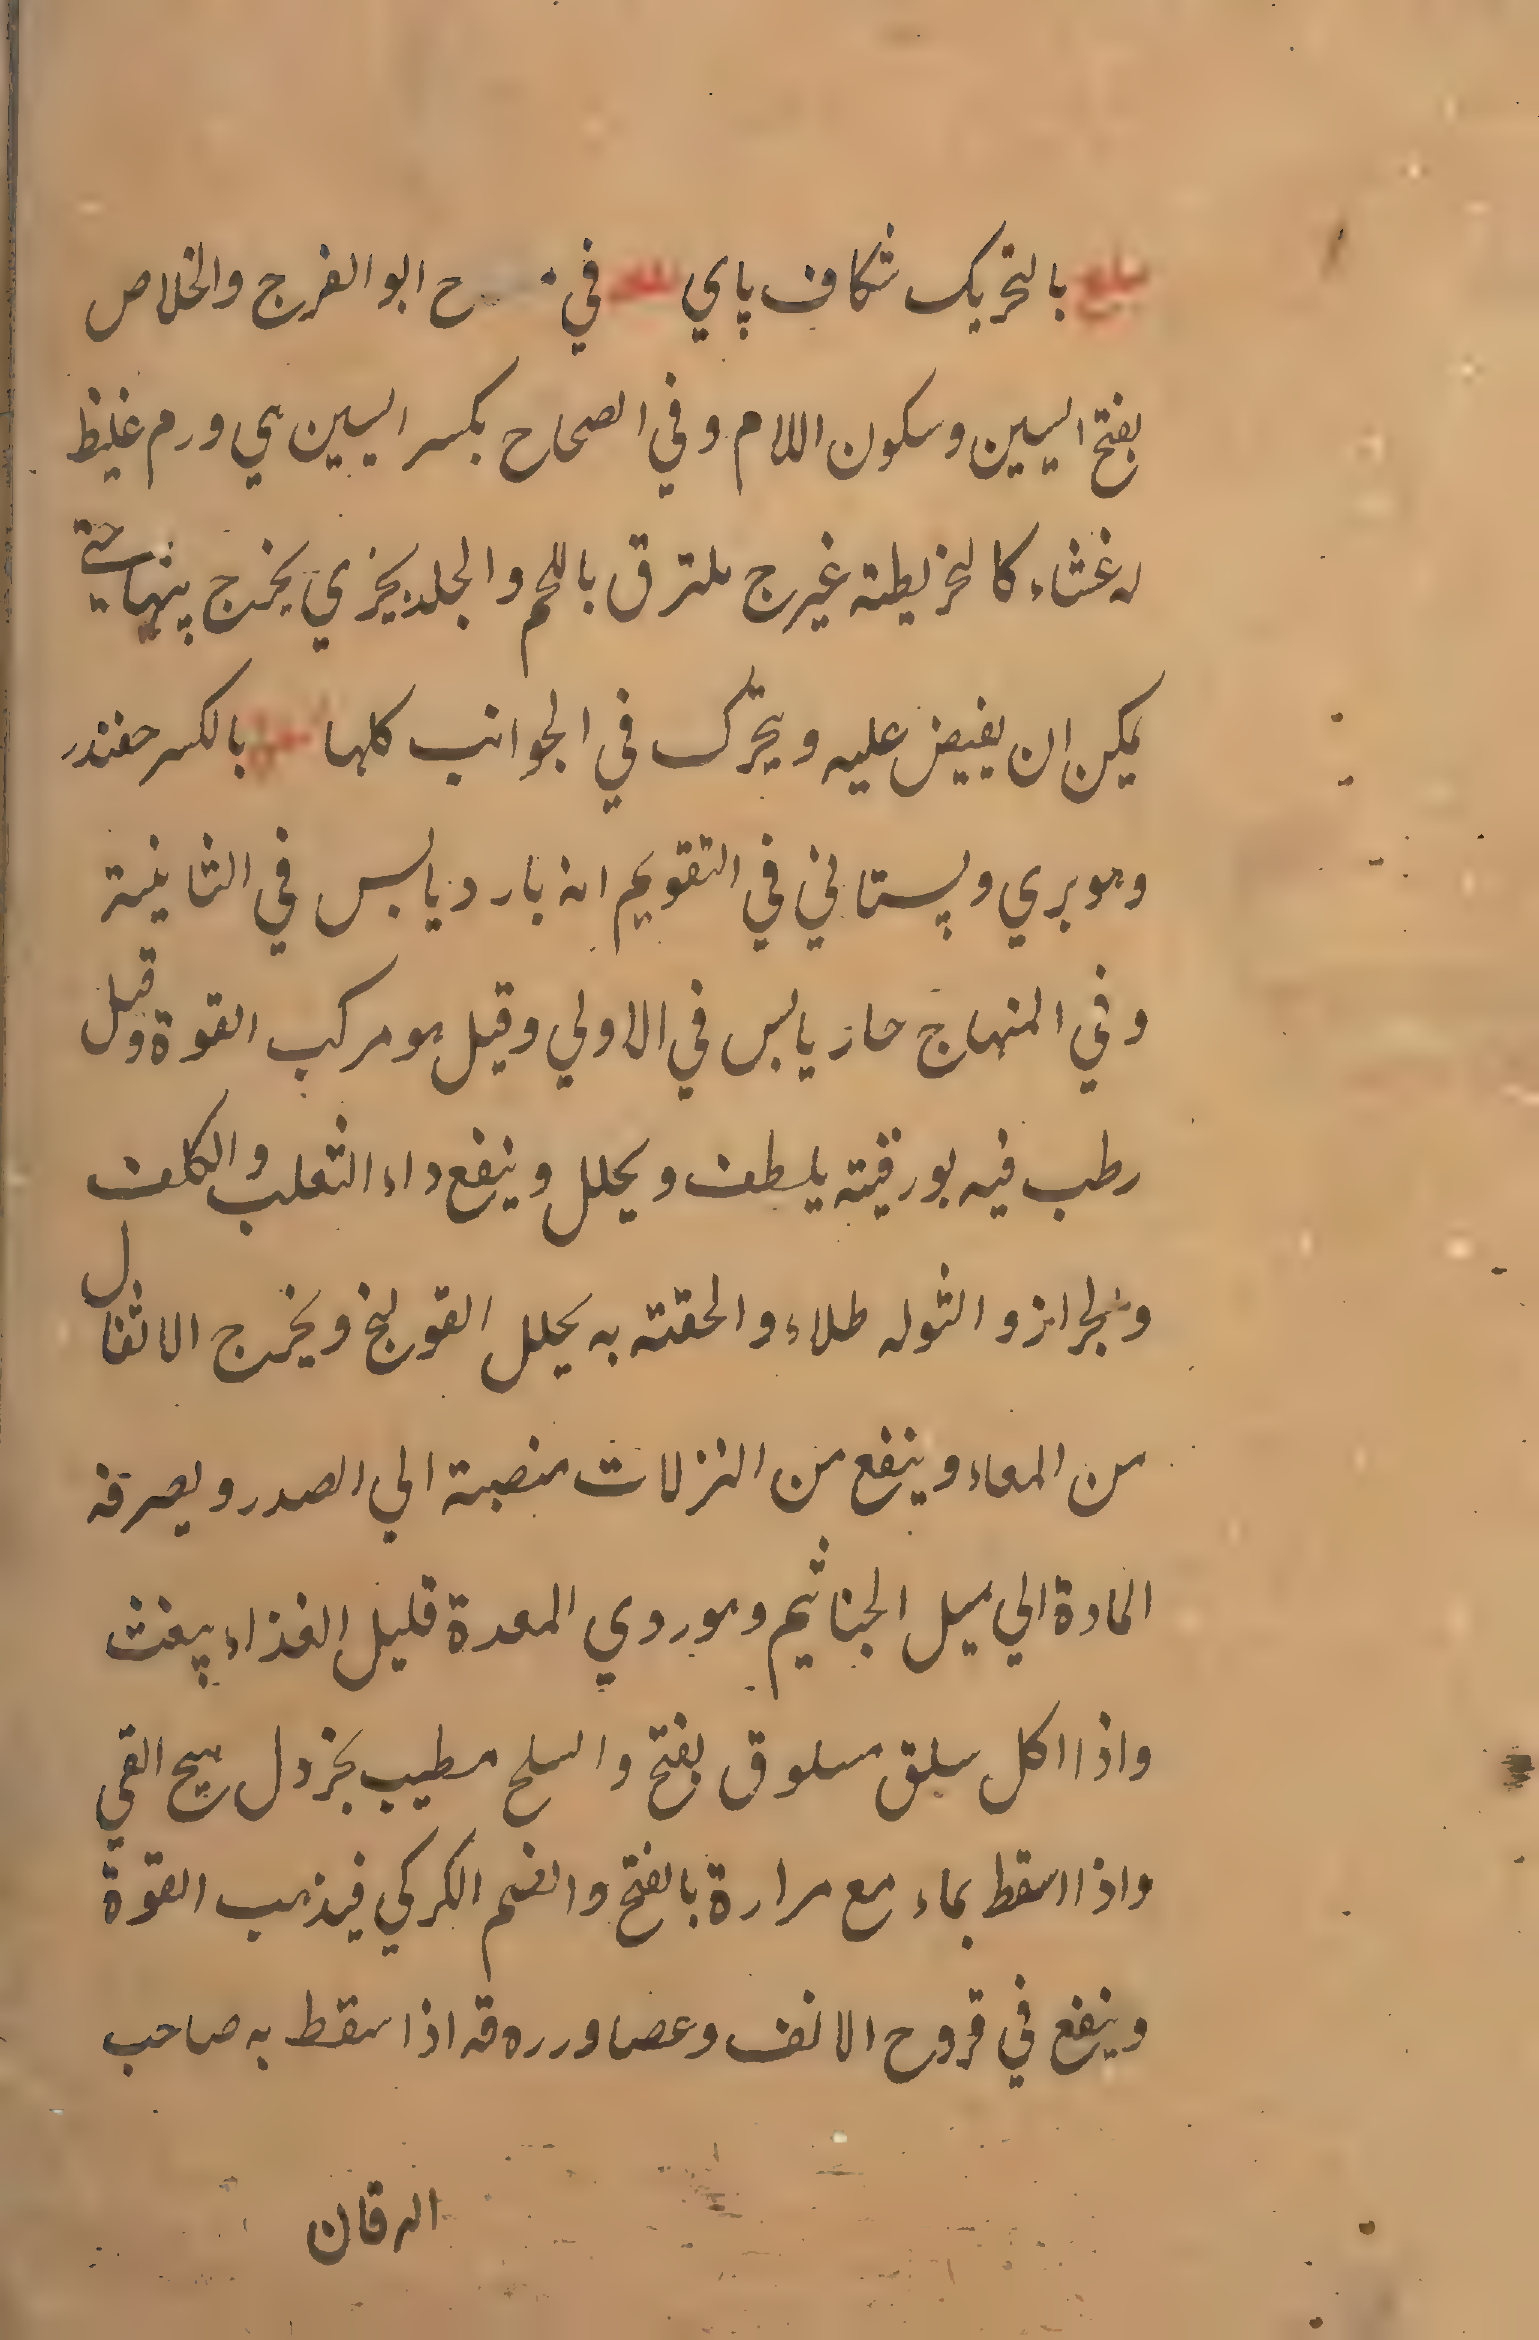 سلع بالتحريك شكاف پاي سلعه في ح ابو الفرج والخلاص
بفتح السين وسكون اللام وفي الصحاح بكسر السين هي ورم غليظ
له غشاء كالخريطة غير ج ملترق باللحم والجلد يخري يخرج بينها حتي
يمكن ان يفيض عليه ويتحرّك في الجوانب كلها بالكسر حفندر
وهو بري وبستاني في التقويم انه بارد يابس في الثانية
وفي المنهاج حار يابس في الاولي وقيل هو مركب القوة وقيل
رطب فيه بورقية يلطف ويحلل وينفع داء الثعلب والكلف
والجراز والثوله طلاء والحقنه به يحلل القولنج ويخرج الاثفال
من المعاء وينفع من النزلات منصبة الي الصدر ويصرفه
المادة الي ميل الجناثيم وهو روي المعدة قليل الغذاء يبغث
واذا اكل سلق مسلوق بفتح والسلح مطيب بخردل هيج القي
واذا اسقط بماء مع مرارة بالفتح والضم الكركي فيذهب القوة
وينفع في قروح الانف وعصا ورره قه اذا سقط به صاحب
الرقان